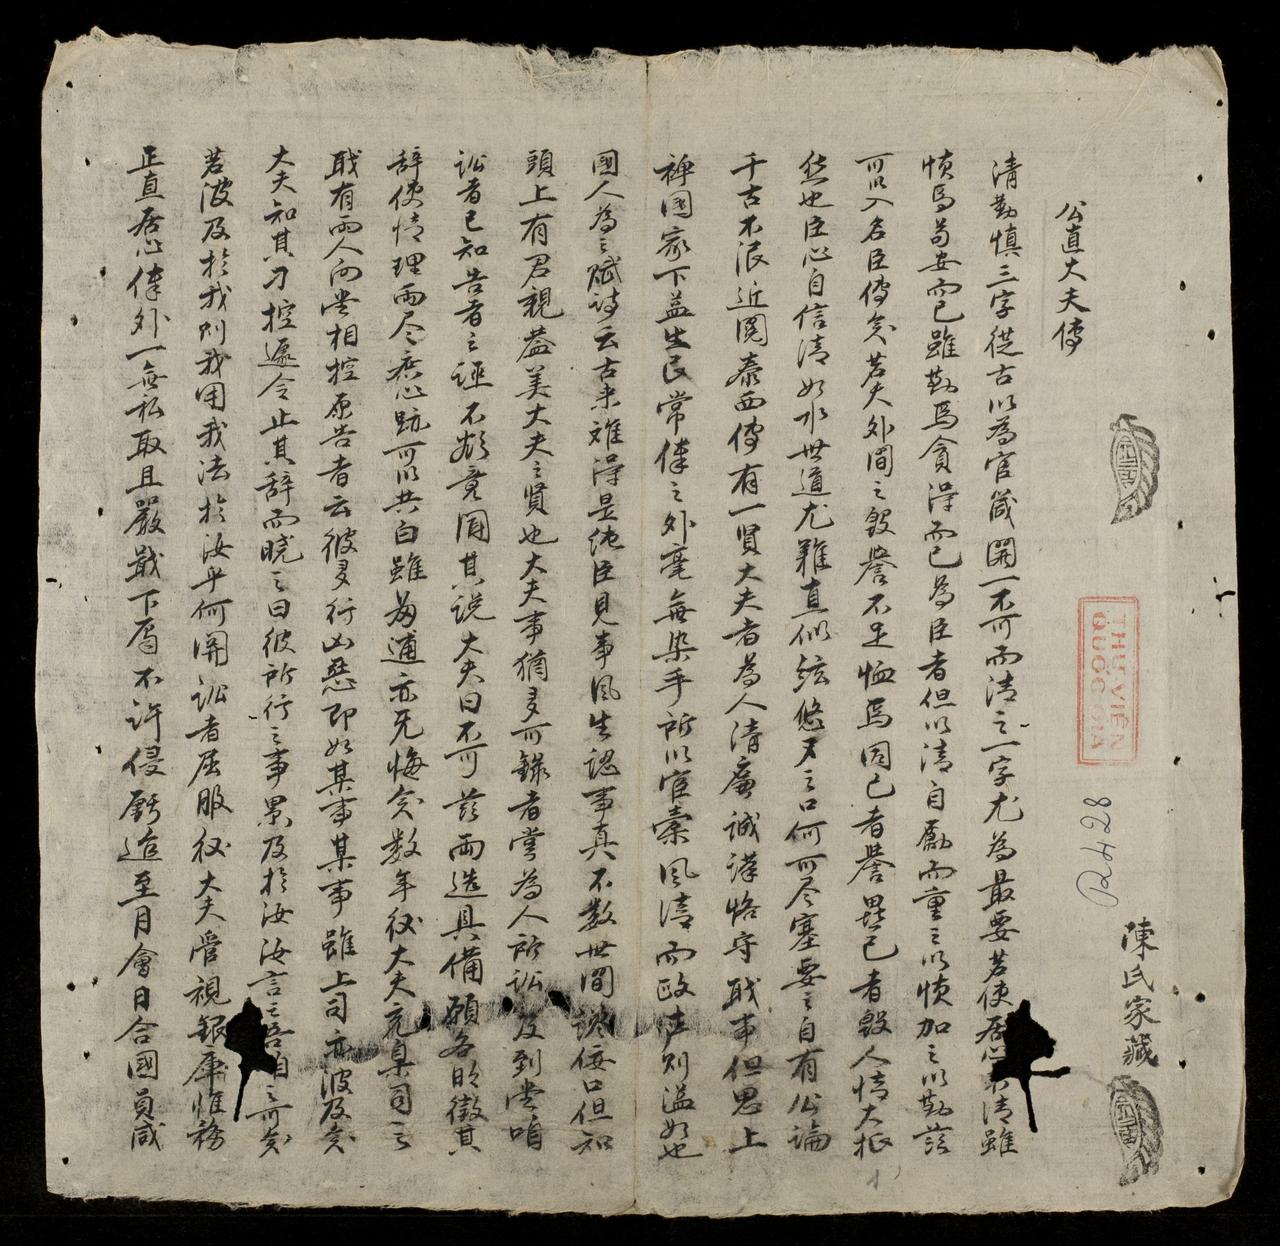 陳氏家藏
THƯ VIỆN
QUỐC GIA
公直大夫傳
清勤慎三字從古以為官箴闕一不可而清之一字尤為最要若使居心不清雖
慎焉苟安而已雖勤焉貪得而已為臣者但以清自勵而重之以慎加之以勤茲
可以入名臣傳矣若夫外间之毀譽不足恤焉因己者譽異己者毀人情大抵
然也臣心自信清如水世道尤難直似絃悠々之口何可尽塞要之自有公論
千古不泯近閱泰西傳有一賢大夫者為人清廉誠謹恪守職事但思上
裨國家下益生民常俸之外毫無染手所以官橐風清而政声則溢如也
國人為之賦詩云古来难得是純臣見事風生認事真不数世间諛佞口但知
頭上有君親蓋美大夫之賢也大夫事猶多可錄者嘗為人所訟及到堂咱
訟者已知告者之誣不欲竟聞其説大夫曰不可茲両造具備願各明徵其
辞使情理両尽庶心跡可以共白雖茲逋亦无悔矣数年後大夫充臬司之
職有両人向堂相控原告者云彼多行凶惡即如某事某事雖上司亦波及矣
大夫知其刁控遽令止其辞而曉之曰彼所行之事累及於汝汝言之吾自之可矣
若波及於我則我用我法於汝乎何関訟者屈服後大夫管視銀庫惟務
正直居心俸外一無私取且嚴戢下屬不許侵虧迨至月會日合國員咸